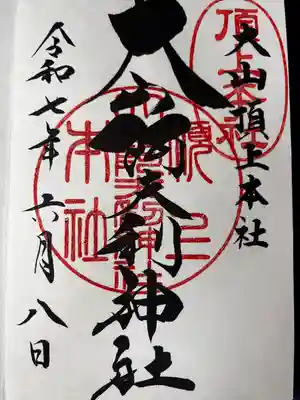 大山頂上本社
大山阿夫利神社
令和七年六月八日
頂上本社